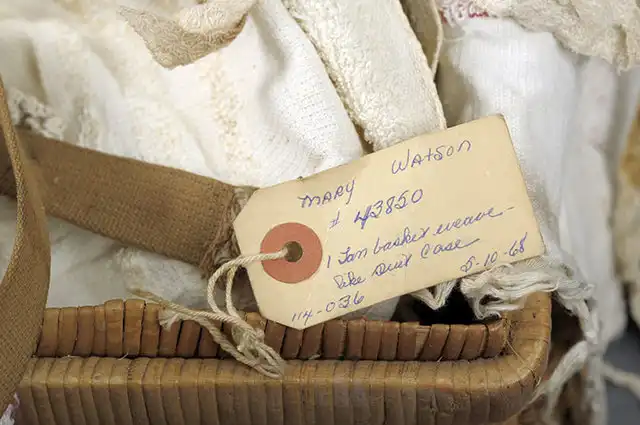 Mary Watson
# 43850
1 Tan basket weave-
like Suit Case
5-10-68
114-036